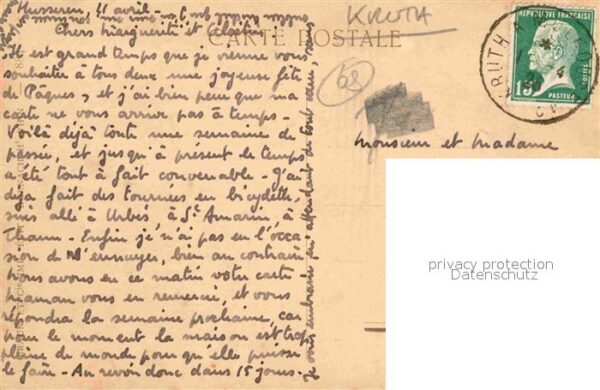 Husseren, 11 avril -
Chers Marguerite et
Il est grand temps que je vienne vous
souhaiter à tous deux une joyeuse fête
de Pâques, et j'ai bien peur que ma
carte ne vous arrive pas à temps -
Voilà déjà toute une semaine de
passée, et jusqu'à présent le temps
a été tout à fait convenable - J'ai
déjà fait des tournées en bicyclette,
suis allé à Urbès, à St Amarin, à
Thann - Enfin je n'ai pas eu l'occa
sion de m'ennuyer, bien au contraire
Nous avons eu ce matin votre carte
maman vous en remercie, et vous
répondra la semaine prochaine, car
pour le moment la maison est trop
pleine de monde pour qu'elle puisse
le faire - Au revoir donc dans 15 jours -
Je vous embrasse en attendant de tout cœur,
KRUTH
CARTE POSTALE
68
Monsieur et Madame
RÉPUBLIQUE FRANÇAISE
15
PASTEUR
KRUTH
privacy protection
Datenschutz